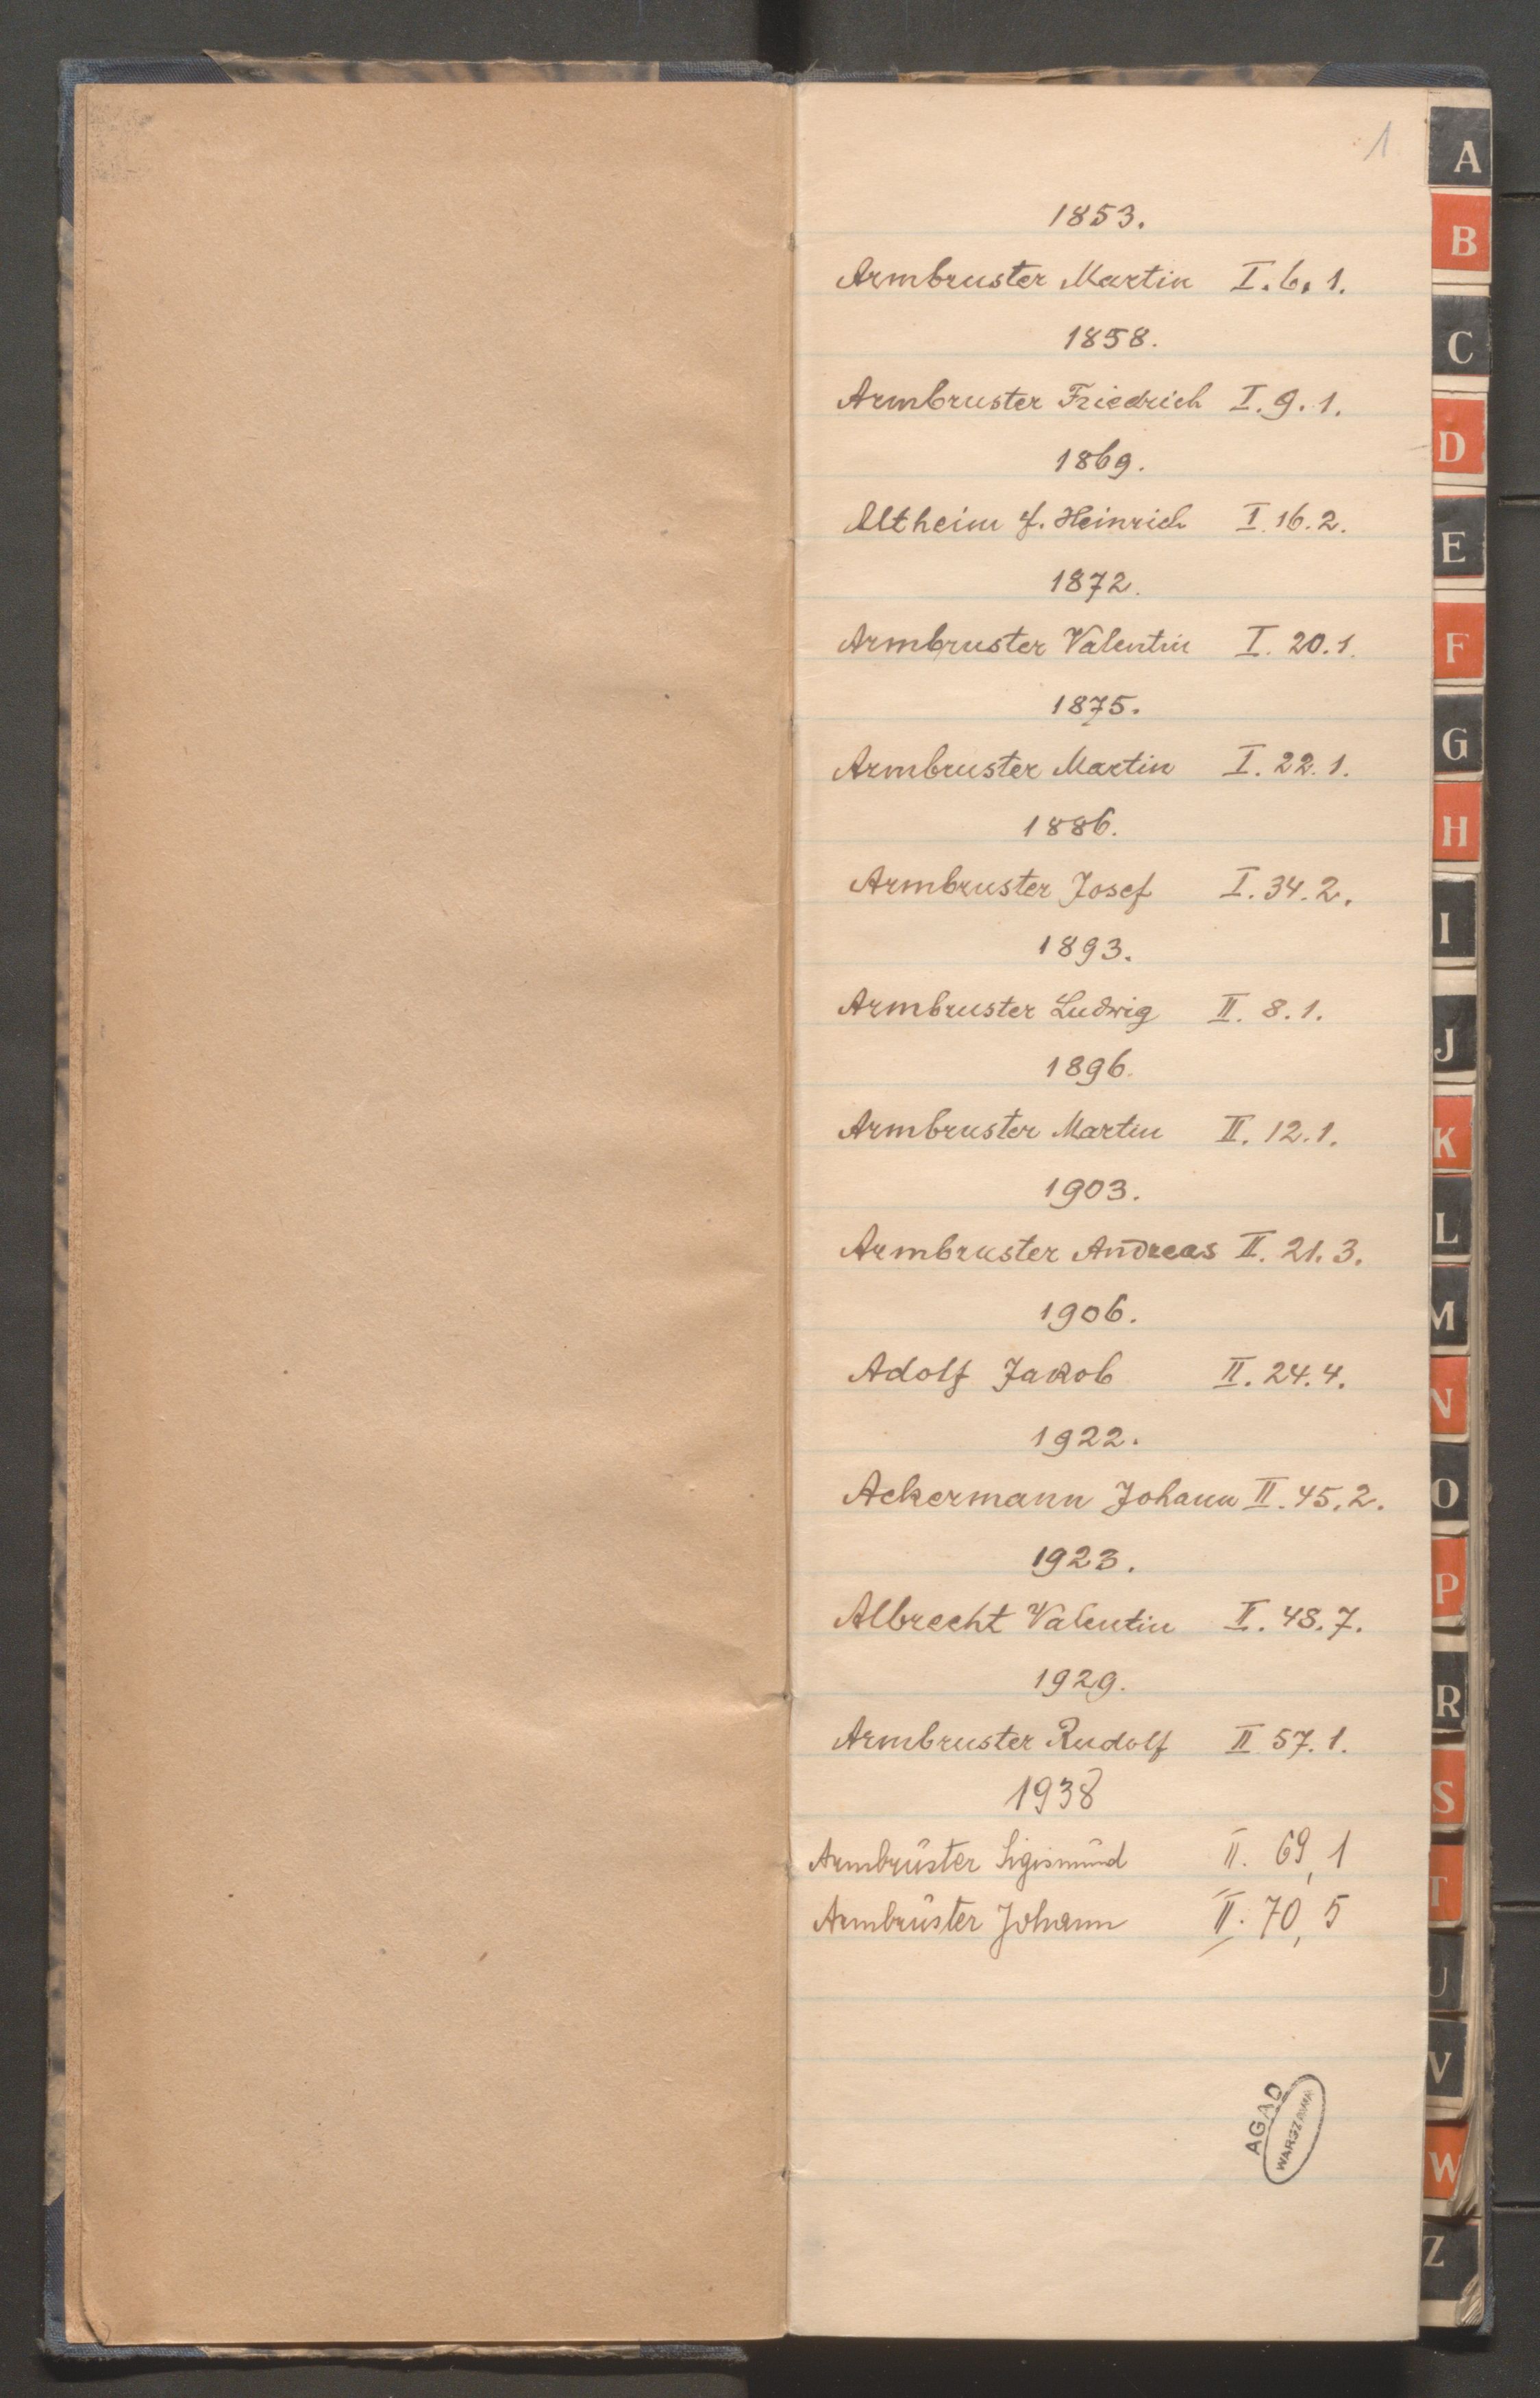 1
1853.
Armbruster Martin I. 6. 1.
1858.
Armbruster Friedrich I. 9. 1.
1869.
Altheim f. Heinrich I. 16. 2.
1872.
Armbruster Valentin I. 20. 1.
1875.
Armbruster Martin I. 22. 1.
1886.
Armbruster Josef I. 34. 2.
1893.
Armbruster Ludwig II. 8. 1.
1896.
Armbruster Martin II. 12. 1.
1903.
Armbruster Andreas II. 21. 3.
1906.
Adolf Jakob II. 24. 4.
1922.
Ackermann Johann II. 45. 2.
1923.
Albrecht Valentin II. 48. 7.
1929.
Armbruster Rudolf II 57. 1.
1938
Armbrŭster Sigismŭnd II. 69, 1
Armbrŭster Johann II. 70, 5
AGAD
WARSZAWA
A
B
C
D
E
F
G
H
I
J
K
L
M
N
O
P
R
S
T
U
V
W
Z